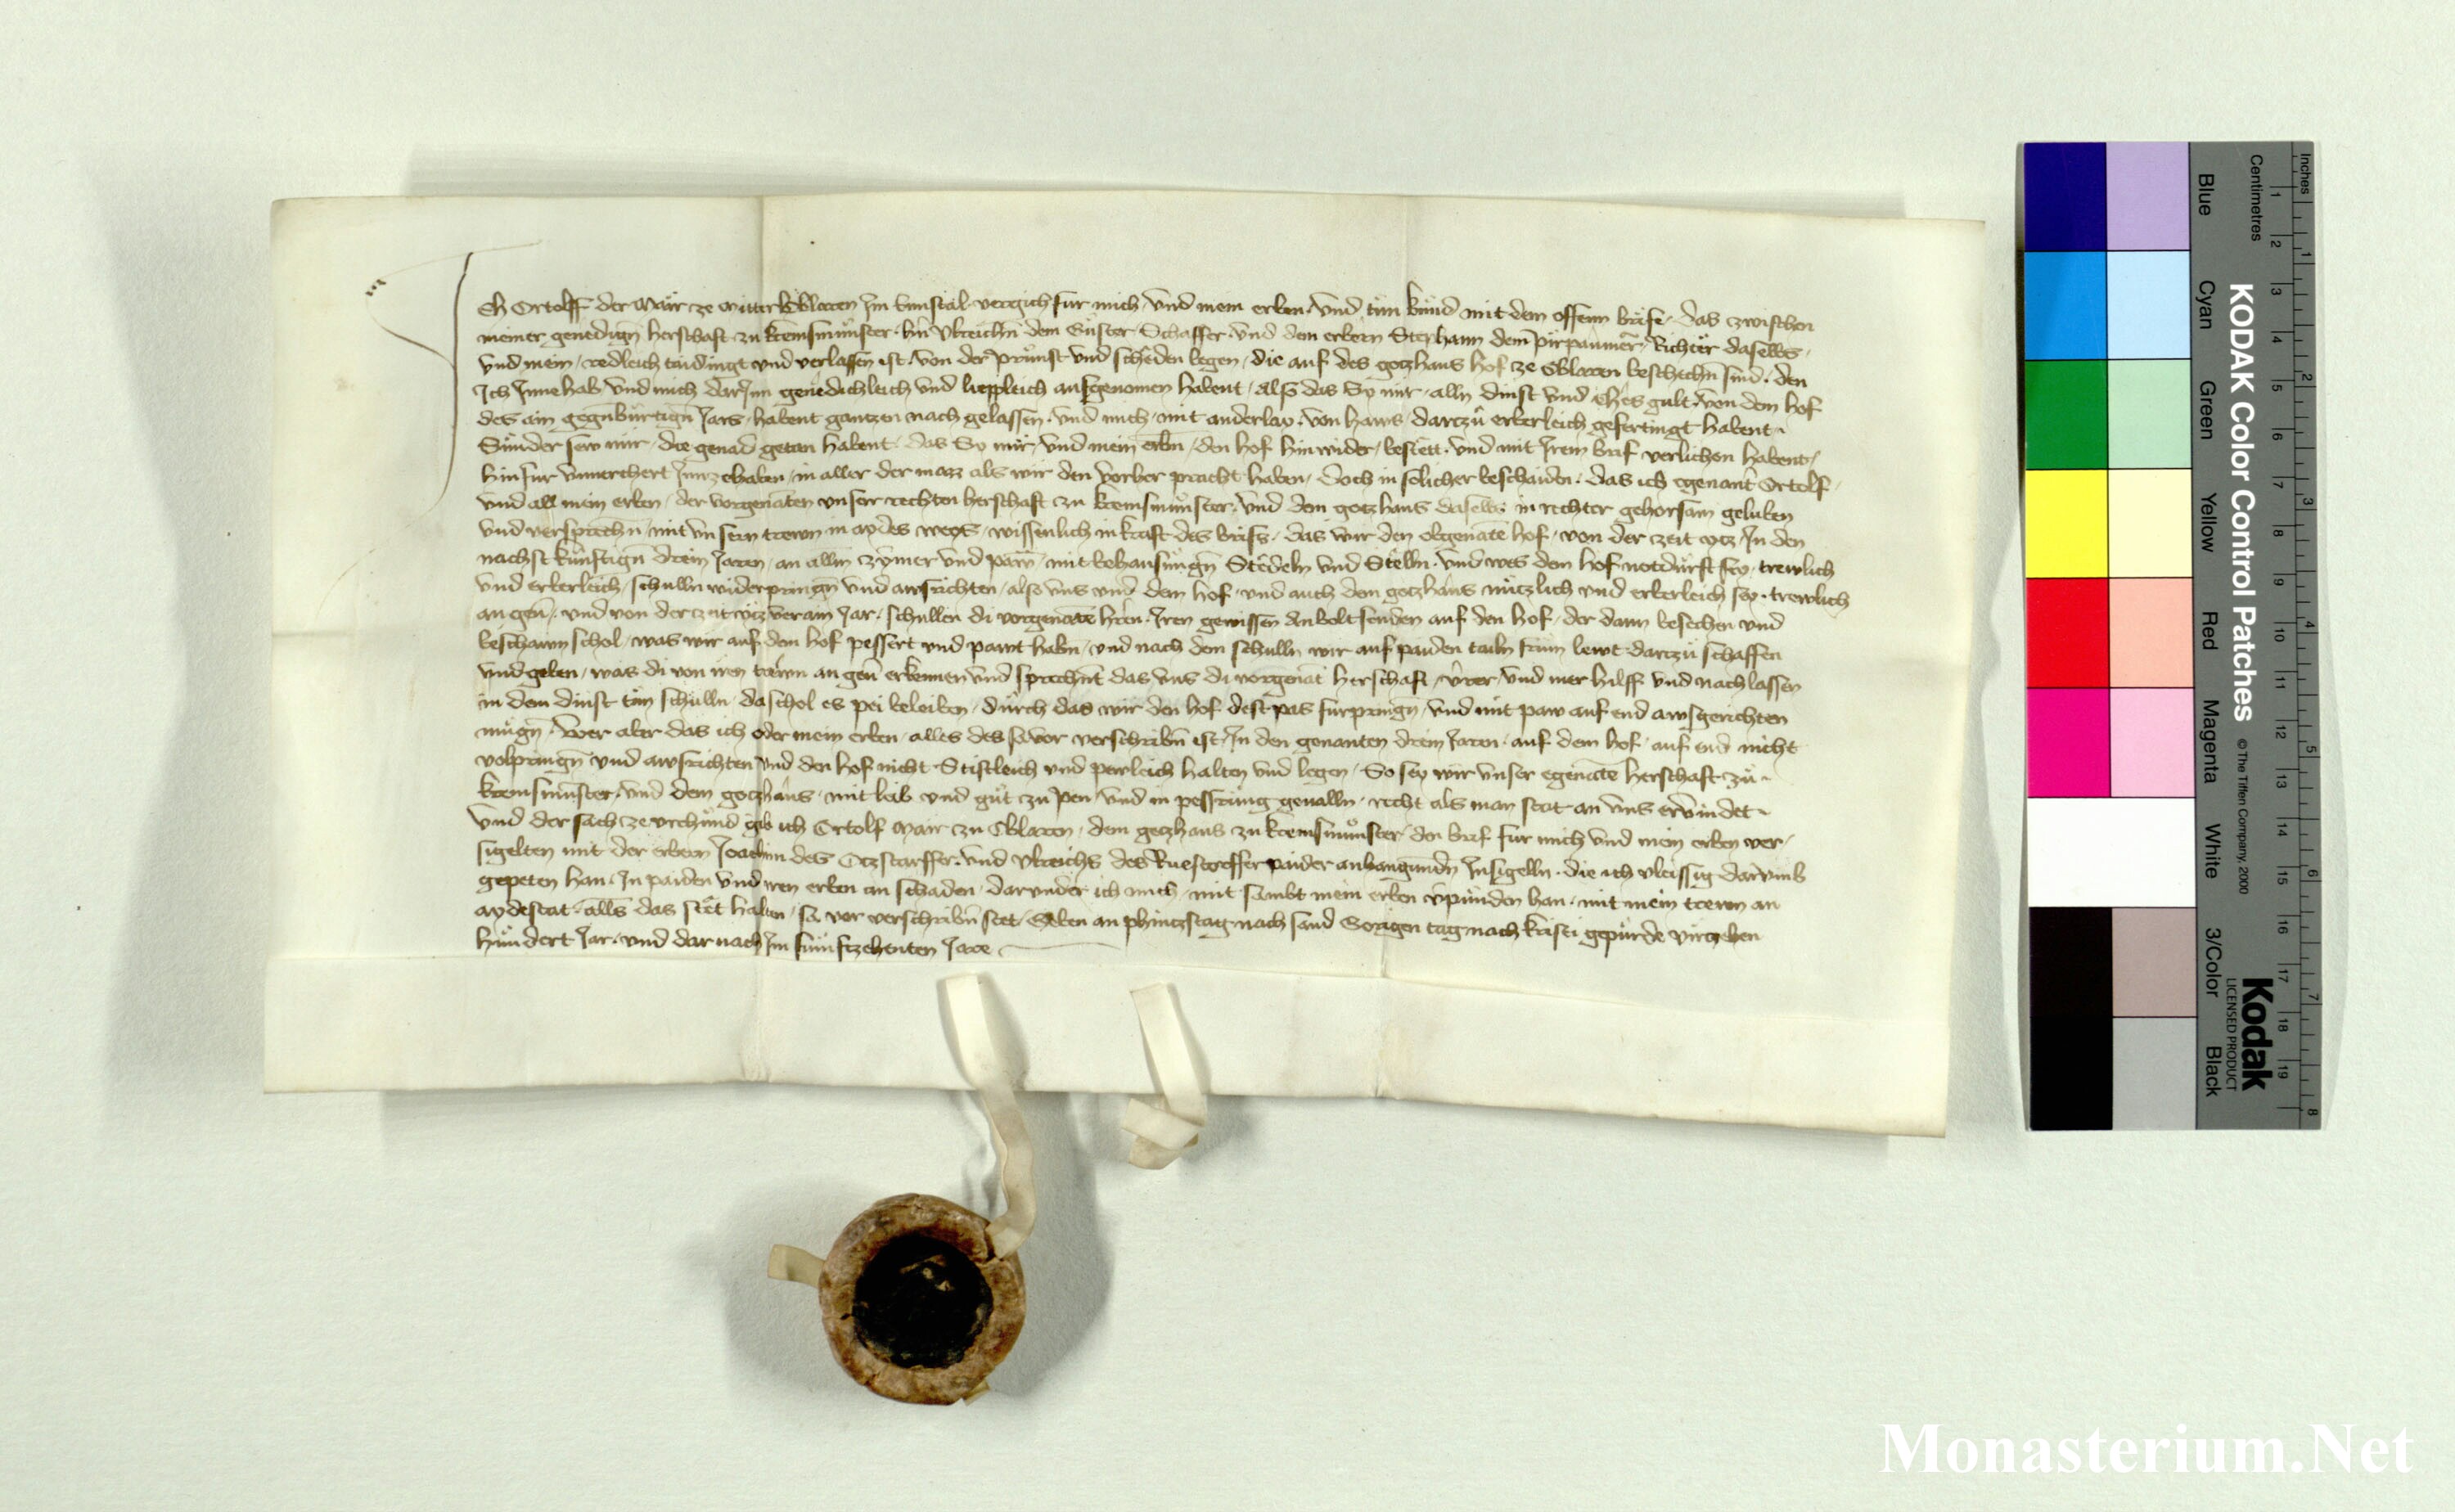 Ich Ortolff der Mair ze Mitter Eblaren Im Ennstal vergich fur mich vnd mein erben vnd tůn kund mit dem offenn briefe das zwischen
meiner genedigñ herschaft zu kremsmůnster hrñ Vlreichñ dem Guster Schaffer vnd dem erbern Stephann dem pirpaumer Richter daselbs
vnd mein redleich taidingt vnd verlassen ist von der průnst vnd scheden wegen die auf des gotzhaus hof ze Eblaren beschechñ sind den
Ich Innehab vnd mich darInn genedichleich vnd liepleich aufgenomen habent als das Sy mir alln dinst vnd gult von dem hof
des ain gegñburtigñ Jars habent gantzen nach gelassen vnd mich mit anderlay von haws dartzů erberleich gefertingt habent
Sunder sew mir die genad getan habent das Sy mir vnd mein erbñ den hof hin wider bestett vnd mit Irem brief verlichen habent
hinfur Innzehaben in aller der mazz als wir den vorher pracht haben doch in solicher beschaiden das ich egenant Ortolf
vnd all mein erben der vorgenanten vnserr rechten herschaft zu kremsmůnster vnd dem gotzhaus daselbs in rechter gehorsam geluben
vnd versprechñ mit vnsern trewn in aydes wegs wissenlich in kraft des briefs das wir den obgenatē hof von der zeit vtz In den
nachst kunftigñ drein Jaren an allm zymer vnd paw mit behausungñ Stedeln vnd Stelln vnd wes dem hof notdurft sey trewlich
vnd erberleich schulln widerpringñ vnd awsrichten also vns vnd dem hof vnd auch dem gotzhaus nutzlich vnd erberleich sey trewlich
an geuer vnd von der zeit vtz vber ain Jar schullen di vorgenatē hren Iren gewissen Anbolt senden auf den hof der dann besechen vnd
beschawn schol was wir auf dem hof pessert vnd pawt habñ vnd nach dem schulln wir auf paiden tailn frum lewt dartzu schaffen
vnd geben was di von iren trewn an geuer erkennen vnd sprechñt das vns di vorgenāt herschaft vrer vnd mer hilff vnd nachlassen
in dem dinst tůn schulln da schol es pei beleiben durch das wir den hof dest pas furpringñ vnd mit paw auf end awsgerichten
mugñ Wer aber das ich oder mein erben alles des so vor verschribñ ist In den genanten drein Jaren auf dem hof auf end nicht
volpringñ vnd awsrichten vnd den hof nicht Stiftleich vnd pewleich halten vnd legen So sey wir vnser egenate herschaft zů
kremsmůnster vnd dem gotzhaus mit leib vnd gůt zu pen vnd in pessrung geualln recht als man stat an vns ervindet
vnd der sach ze vrchund gib ich Ortolf Mair zu Eblaren dem gotzhaus zu kremsmůnster den brief fur mich vnd mein erben ver
sigelten mit der erbern Joachim des vnd Vlreichs des paider anhangundñ Insigelln die ich vleissig darumb
gepeten han In paiden vnd iren erben an schaden darunder ich mich mit sambt mein erben vpunden han mit mein trewn an
aydestat alls das stet halten so vor verschribñ stet Geben an phintztag nach sand Gorigen tag nach kristi gepurde virtzehen
hundert Jar vnd darnach Im funfftzehenten Jare
Inches
Centimetres
Blue
Cyan
Green
Yellow
Red
Magenta
White
3/Color
Black
KODAK Color Control Patches
© The Tiffen Company, 2000
Kodak
LICENSED PRODUCT
Monasterium.Net